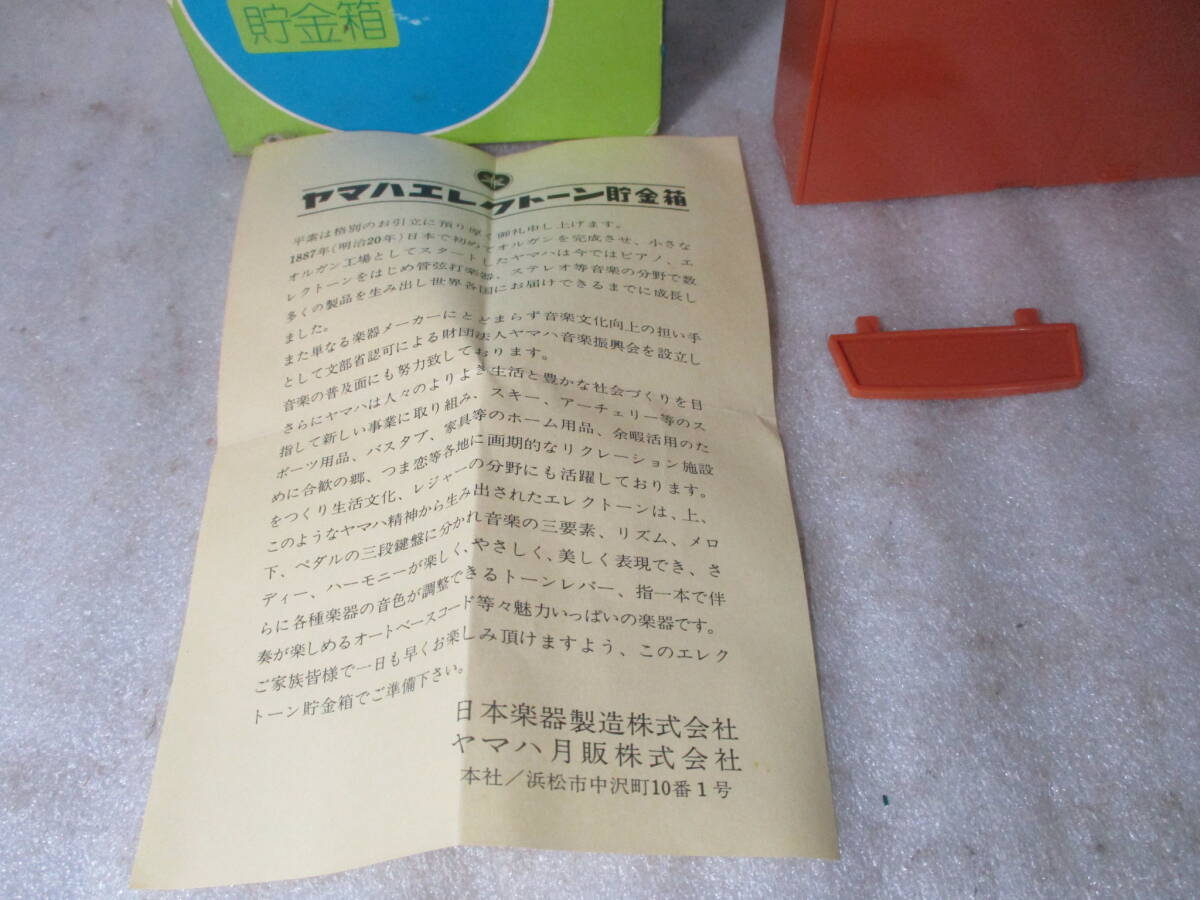 貯金箱
ヤマハエレクトーン貯金箱
平素は格別のお引立に預り厚く御礼申し上げます。
1887年(明治20年)日本で初めてオルガンを完成させ、小さな
オルガン工場としてスタートしたヤマハは今ではピアノ、エ
レクトーンをはじめ管弦打楽器、ステレオ等音楽の分野で数
多くの製品を生み出し世界各国にお届けできるまでに成長し
ました。
また単なる楽器メーカーにとどまらず音楽文化向上の担い手
として文部省認可による財団法人ヤマハ音楽振興会を設立し
音楽の普及面にも努力致しております。
さらにヤマハは人々のよりよき生活と豊かな社会づくりを目
指して新しい事業に取り組み、スキー、アーチェリー等のス
ポーツ用品、バスタブ、家具等のホーム用品、余暇活用のた
めに合歓の郷、つま恋等各地に画期的なリクレーション施設
をつくり生活文化、レジャーの分野にも活躍しております。
このようなヤマハ精神から生み出されたエレクトーンは、上、
下、ペダルの三段鍵盤に分かれ音楽の三要素、リズム、メロ
ディー、ハーモニーが楽しく、やさしく、美しく表現でき、さ
らに各種楽器の音色が調整できるトーンレバー、指一本で伴
奏が楽しめるオートベースコード等々魅力いっぱいの楽器です。
ご家族皆様で一日も早くお楽しみ頂けますよう、このエレク
トーン貯金箱でご準備下さい。
日本楽器製造株式会社
ヤマハ月販株式会社
本社/浜松市中沢町10番1号